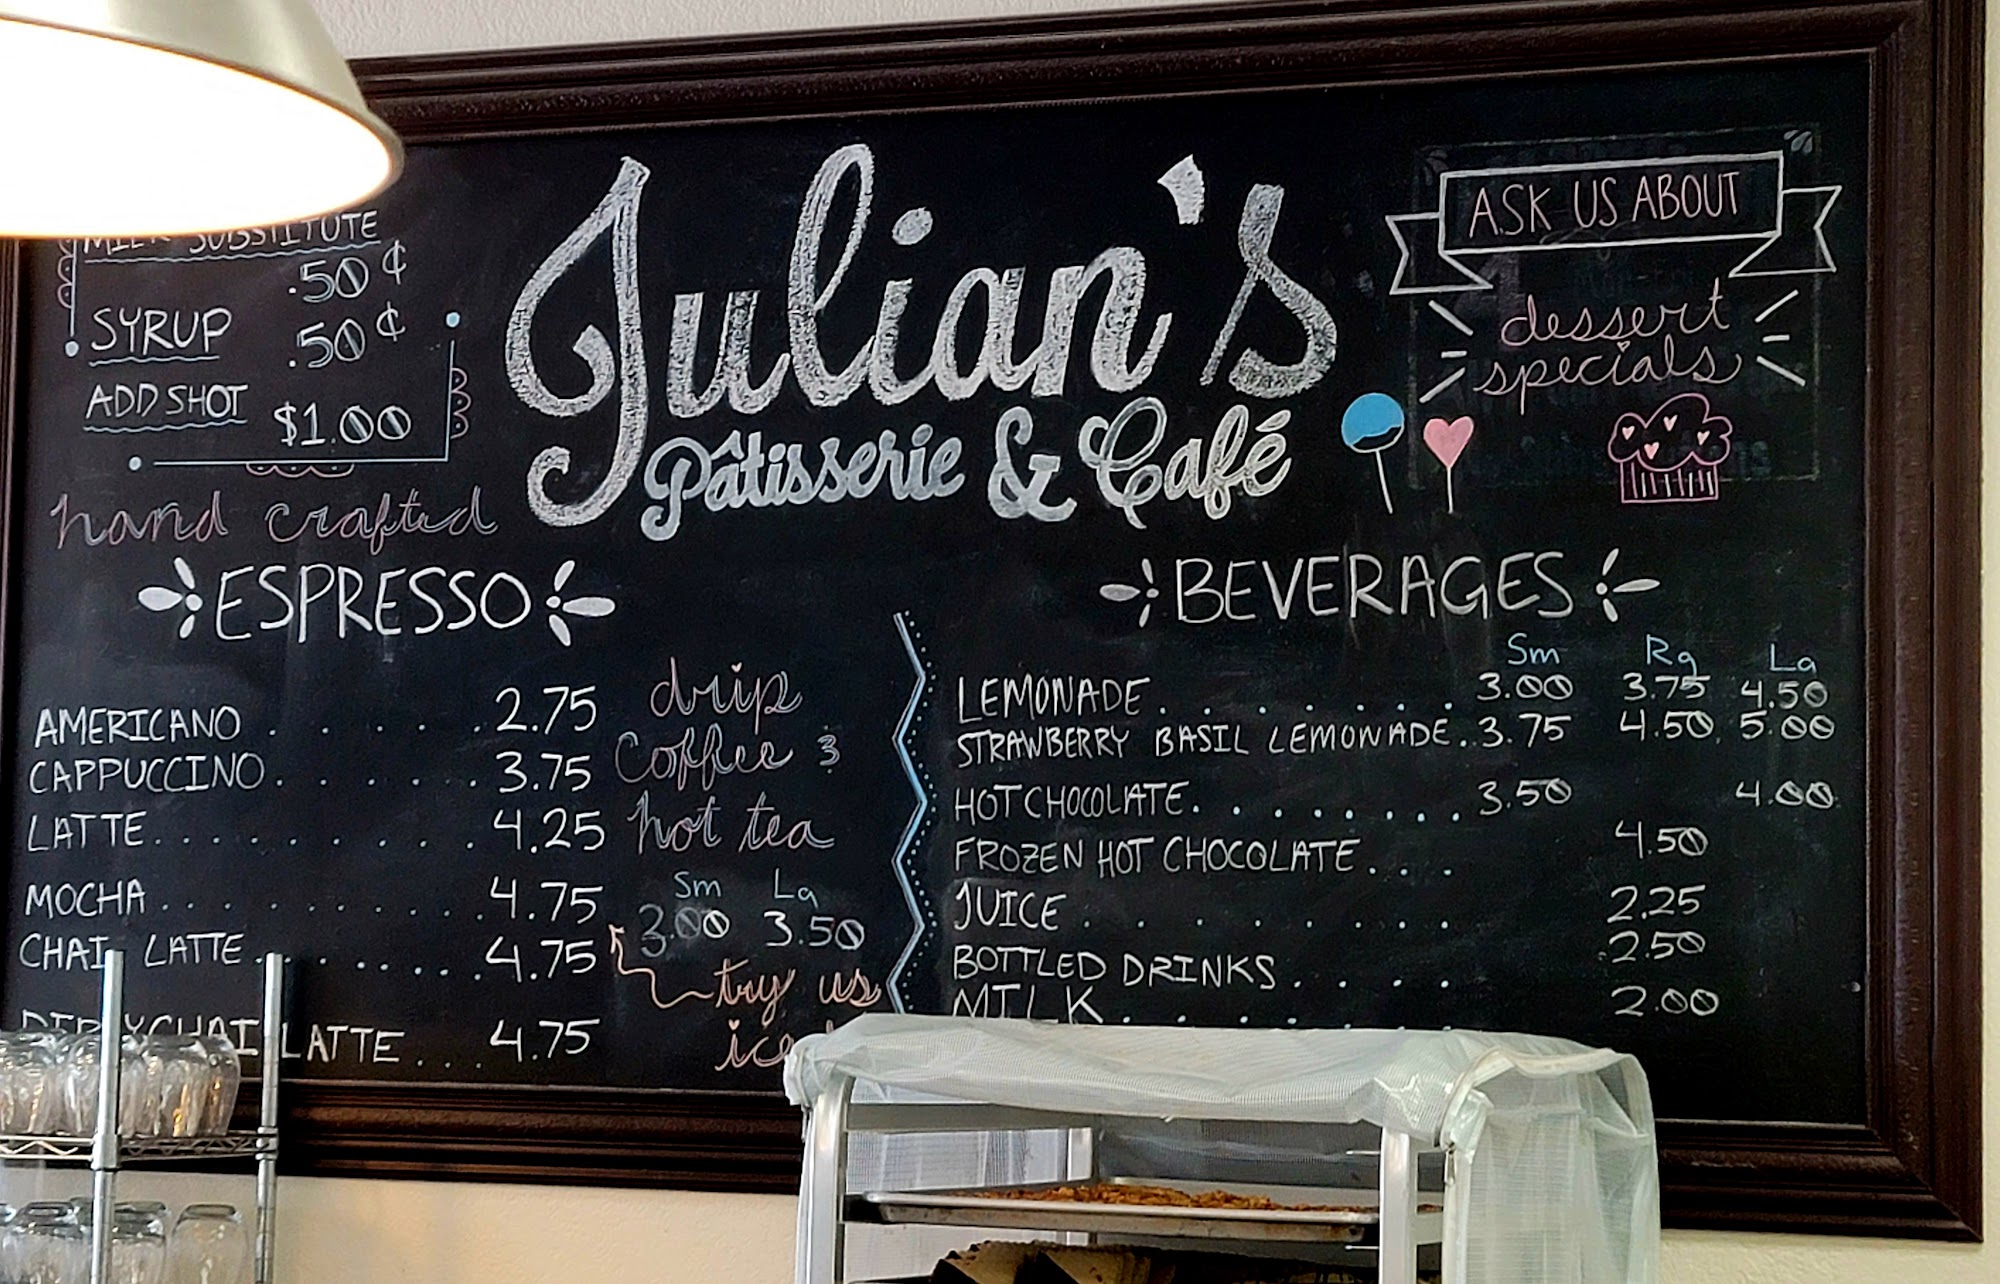 MILK SUBSTITUTE
.50¢
SYRUP .50¢
ADD SHOT $1.00
Julian's
Pâtisserie & Café
ASK US ABOUT
dessert
specials
hand crafted
ESPRESSO
AMERICANO . . . . . 2.75
CAPPUCCINO . . . . . 3.75
LATTE . . . . . . . . . . 4.25
MOCHA . . . . . . . . . . 4.75
CHAI LATTE . . . . . . . . 4.75
DIRTY CHAI LATTE . . . 4.75
drip
coffee &
hot tea
Sm La
3.00 3.50
try us
BEVERAGES
Sm Rg La
LEMONADE . . . . . . . . 3.00 3.75 4.50
STRAWBERRY BASIL LEMONADE . . 3.75 4.50 5.00
HOT CHOCOLATE . . . . . . . . 3.50 4.00
FROZEN HOT CHOCOLATE . . . 4.50
JUICE . . . . . . . . . 2.25
BOTTLED DRINKS . . . . 2.50
MILK . . . . . . 2.00